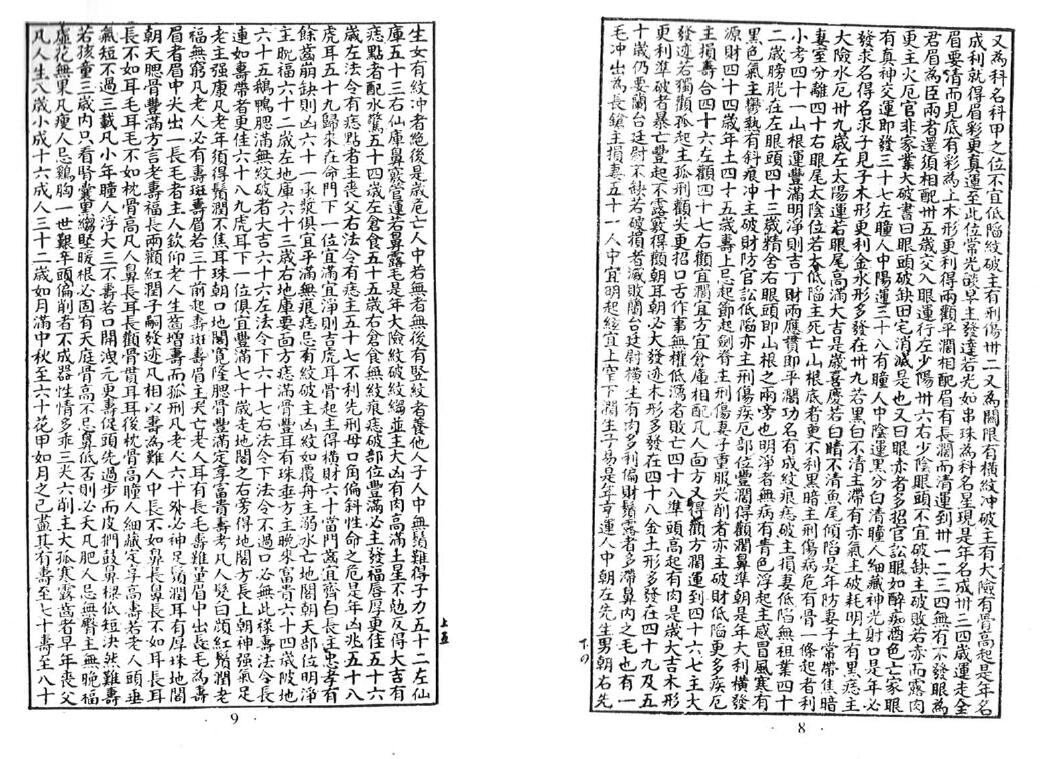 又為科名科甲之位不宜低陷紋破主有刑傷卅二又為關限有橫紋冲破主有大險有骨高起是年名
成利就得眉彩更真運至此位常光談早主發達若光如串珠為科名呈現是年名成卅三四歲運走金
眉要清而見底有彩為上木形更利得兩顴平濶相配眉有長濶而清運到卅一二三四無有不發眼為
君眉為臣兩者還須相配卅五歲交入眼運行左少陽卅六右少陰眼頭不宜破缺主破敗若赤而露肉
更主火厄官非家業大破書曰眼頭破缺田宅消滅是也又曰眼赤者多招官訟眼如醉痴酒色亡家眼
有真神交運即發三十七左瞳人中陽運三十八有瞳人中陰運黑分白清瞳人細藏神光射口是年必
發求名得名求子見子木形更利金水形多發在卅九若黑白不清主滯有赤氣主破耗明土有黑痣主
大險水厄卅九歲左太陽運若眼尾高滿大吉是歲喜慶若白睛不清魚尾傾陷是年防妻子常帶焦暗
妻室分離四十右眼尾太陰位若太低陷主死亡山根底者更不利黑暗主刑傷病危有骨一條起者利
小考四十一山根運豐滿明淨則吉丁財兩應貫即平濶功名有成紋痕痣破主損妻低陷無祖業四十
二歲膀胱在左眼頭四十三歲精舍右眼頭即山根之兩旁也明淨者無病有青色浮起主感冒風寒有
黑色氣主鬱熱有斜痕冲主破財防官訟低陷亦主刑傷疾厄部位豐濶得顴濶鼻準朝是年大利橫發
源財四十四歲年土四十五歲壽上忌起節起劍脊主刑傷妻子重服哭削者亦主破財低陷更多疾厄
主損壽合四十六左顴四十七右顴宜濶宜方宜倉庫相配凡人面方又得顴方濶運到四十六七主大
發迹若獨顴孤起主孤刑顴尖更招口舌作事無權低濕者敗亡四十八準頭高起有肉是歲大吉木形
更利準破者暴亡豐起不露竅得顴朝耳朝必大發迹木形多發在四十八金土形多發在四十九及五
十歲仍要蘭台廷尉不缺若破損者減敗蘭台廷尉橫生有肉多利偏財鬚露者多滯鼻內之毛也有一
毛冲出為長鎗主損妻五十一人中宜明起經宜上窄下濶生子易是年京運人中朝左先生男朝右先
下の
· 8 ·
生女有紋冲者絕後是歲危亡人中若無者無後有竪紋者養他人子人中無鬚難得子力五十二左仙
庫五十三右仙庫鼻竅管運若鼻露毛是年大險紋破紋縐並主大凶有肉高滿土星不勉反得大吉有
痣點者配水驚五十四歲左倉食五十五歲右倉食無紋痕痣破部位豐滿必主發福唇厚更佳五十六
歲左法令有痣點者主喪父右法令有痣主五十七不利先刑母口角偏斜性命之危是年凶兆五十八
虎耳五十九歸來在命門下一位宜滿宜淨則吉虎耳骨起主得橫財六十當門齒宜齊白長主忠孝有
餘齒崩缺則凶六十一承漿俱宜平滿無痕痣忌有紋破主凶紋如覆舟主溺水亡地閣朝天部位明淨
主晩福六十二歲左地庫六十三歲右地庫要面方痣滿骨豐耳有珠垂方主晩來富貴六十四歲陂地
六十五鵝鴨腮滿無紋破者大吉六十六左法令下六十七右法令下法令不過口必無此樣壽法令長
連如壽帶者更佳六十八九虎耳下一位俱宜豐滿七十歲走地閣之右旁得地閣方長上朝神强氣足
老主强康凡老年須得鬚潤不焦耳珠朝口地閣寬隆腮骨豐滿定享富貴壽考凡人髮白顏紅鬚潤老
福無窮凡老人必有壽斑壽眉若三十前起壽斑壽眉主夭亡老人耳有長毛壽難量眉中出長毛為壽
眉者眉中尖出一長毛者主人欽仰老人生齒增壽而孤刑凡老人六十外必神足頸潤耳有厚珠地閣
朝天腮骨豐滿方言老壽福長兩顴紅潤子嗣發迹凡相以壽為難人中長不如鼻長鼻長不如耳長耳
長不如耳毛耳毛不如枕骨高凡人鼻長耳長顴骨貫耳耳後枕骨高瞳人細藏定享高壽若老人頭垂
氣短不過三載凡小年瞳人浮大三不壽若口開洩元更壽促頭先過步而皮們鼓鼻根低短決然難壽
若孩童三歲內只看腎囊黑縐堅暖根必固有天庭骨高不忌鼻低否則必夭凡肥人忌無臀主無晩福
虛花無果凡瘦人忌鷄胸一世艱辛頭偏削者不成器性情多乖三尖六削主大孤寒露齒者早年喪父
凡人生八歲小成十六成人三十二歲如月滿中秋至六十花甲如月之已盡其有壽至七十壽至八十
上五
· 9 ·